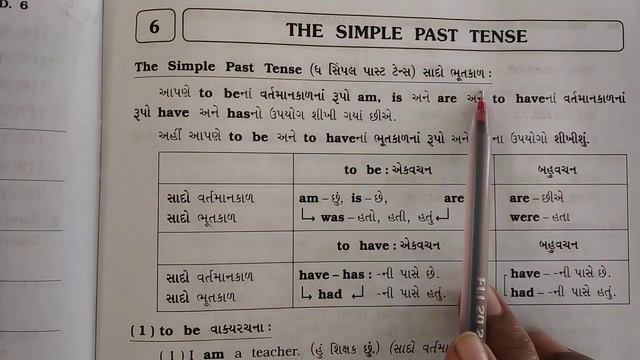 D. 6
6
THE SIMPLE PAST TENSE
The Simple Past Tense (ધ સિંપલ પાસ્ટ ટેન્સ) સાદો ભૂતકાળ :
આપણે to beનાં વર્તમાનકાળનાં રૂપો am, is અને are અને to haveનાં વર્તમાનકાળનાં
રૂપો have અને hasનો ઉપયોગ શીખી ગયાં છીએ.
અહીં આપણે to be અને to haveનાં ભૂતકાળનાં રૂપો અને ના ઉપયોગો શીખીશું.
to be : એકવચન બહુવચન
સાદો વર્તમાનકાળ am – છું, is – છે, are are – છીએ
સાદો ભૂતકાળ was – હતો, હતી, હતું were – હતા
to have : એકવચન બહુવચન
સાદો વર્તમાનકાળ have – has : -ની પાસે છે. have – -ની પાસે છે.
સાદો ભૂતકાળ had -ની પાસે હતું. had – -ની પાસે હતું.
(1) to be વાક્યરચના :
(1) I am a teacher. (હું શિક્ષક છું.) (સાદો વર્તમા